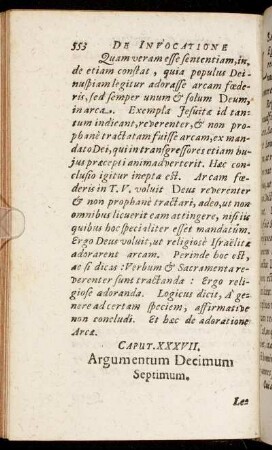 553 DE INVOCATIONE
Quam veram esse sententiam, in-
de etiam constat, quia populus Dei
nuspiam legitur adorasse arcam fœde-
ris, sed semper unum & solum Deum,
in arca. Exempla Jesuitæ id tan-
tum indicant, reverenter, & non pro-
phanè tractatam fuisse arcam, ex man-
dato Dei, qui in transgressores etiam hu-
jus præcepti animadverterit. Hæc con-
clusio igitur inepta est. Arcam fœ-
deris in T. V. voluit Deus reverenter
& non prophanè tractari, adeo, ut non
omnibus licuerit eam attingere, nisi iis
quibus hoc specialiter esset mandatum.
Ergo Deus voluit, ut religiosè Israëlitæ
adorarent arcam. Perinde hoc est,
ac si dicas: Verbum & Sacramenta re-
verenter sunt tractanda: Ergo reli-
giosè adoranda. Logicus dicit, A ge-
nere ad certam speciem, affirmativè
non concludi. Et hæc de adoratione
Arcæ.
CAPUT. XXXVII.
Argumentum Decimum
Septimum.